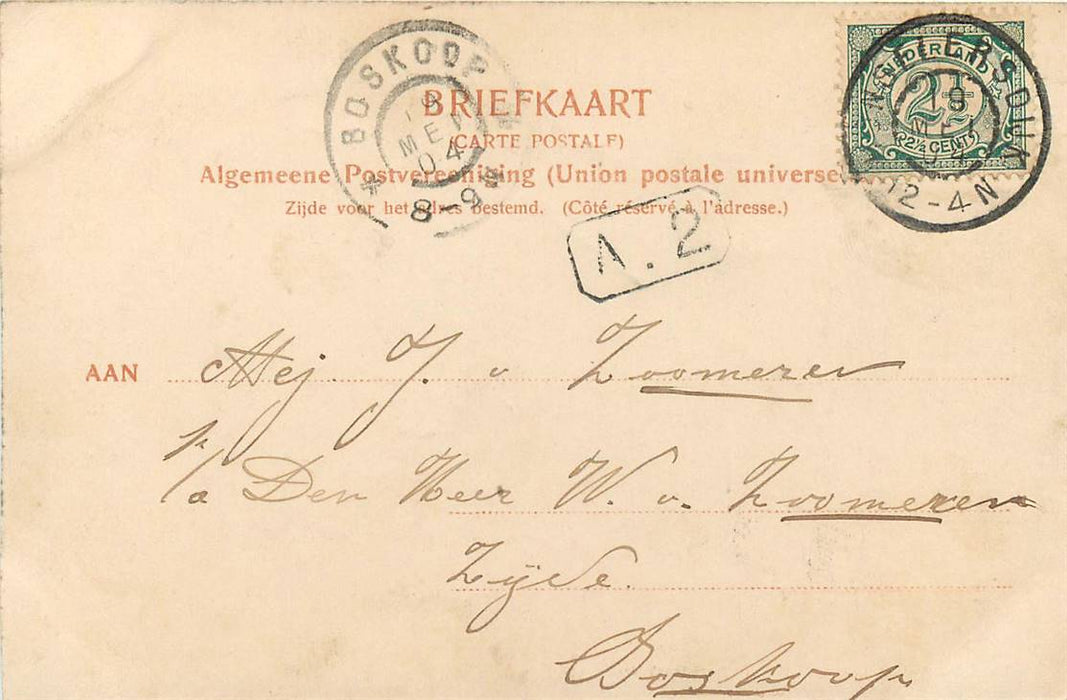 BOSKOOP
19
MEI
04
8-9
BRIEFKAART
(CARTE POSTALE)
Algemeene Postvereeniging (Union postale universe
Zijde voor het adres bestemd. (Côté réservé à l'adresse.)
NEDERLAND
2½
2½ CENT
19
MEI
12-4N
A.2
AAN Mej. J. v Zoomeren
p/a Den Heer W. v. Zoomeren
Zijde.
Boskoop